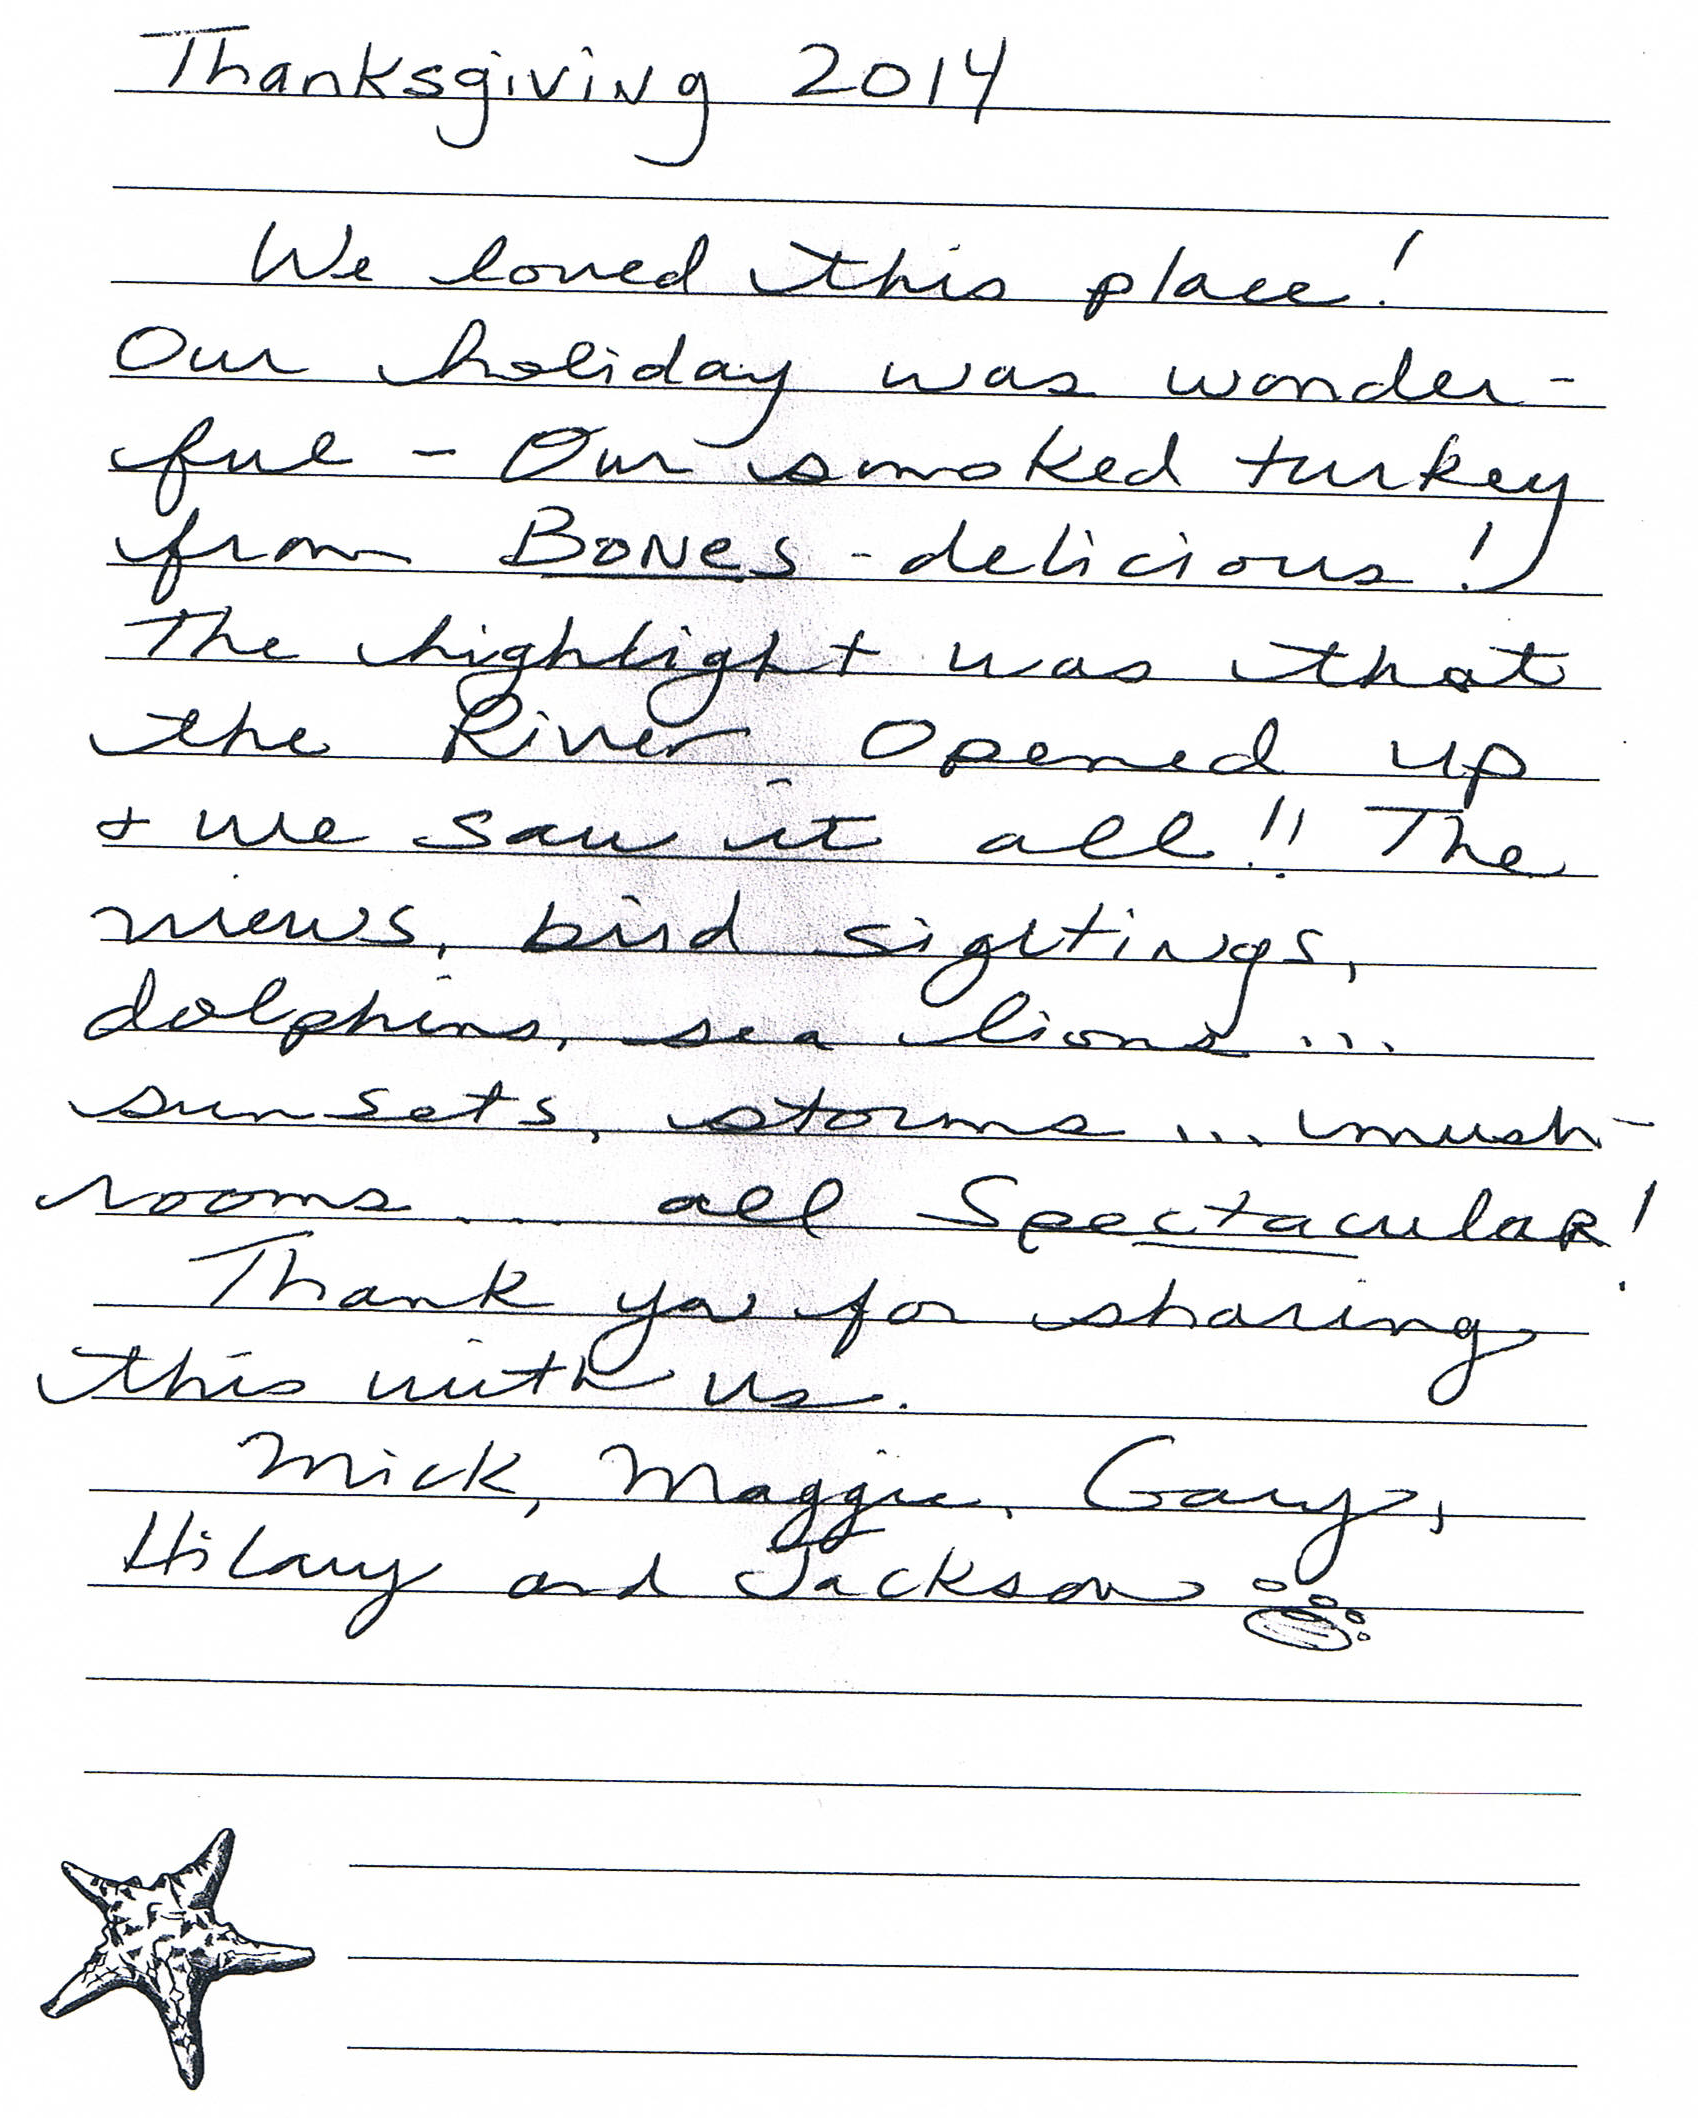 Thanksgiving 2014
We loved this place!
Our holiday was wonder-
ful - Our smoked turkey
from BONES - delicious!
The highlight was that
the River opened up
+ we saw it all!! The
views, bird sightings,
dolphins, sea lions ...
sunsets, storms ... mush-
rooms .... all Spectacular!
Thank you for sharing
this with us.
Mick, Maggie, Gary,
Hilary and Jackson